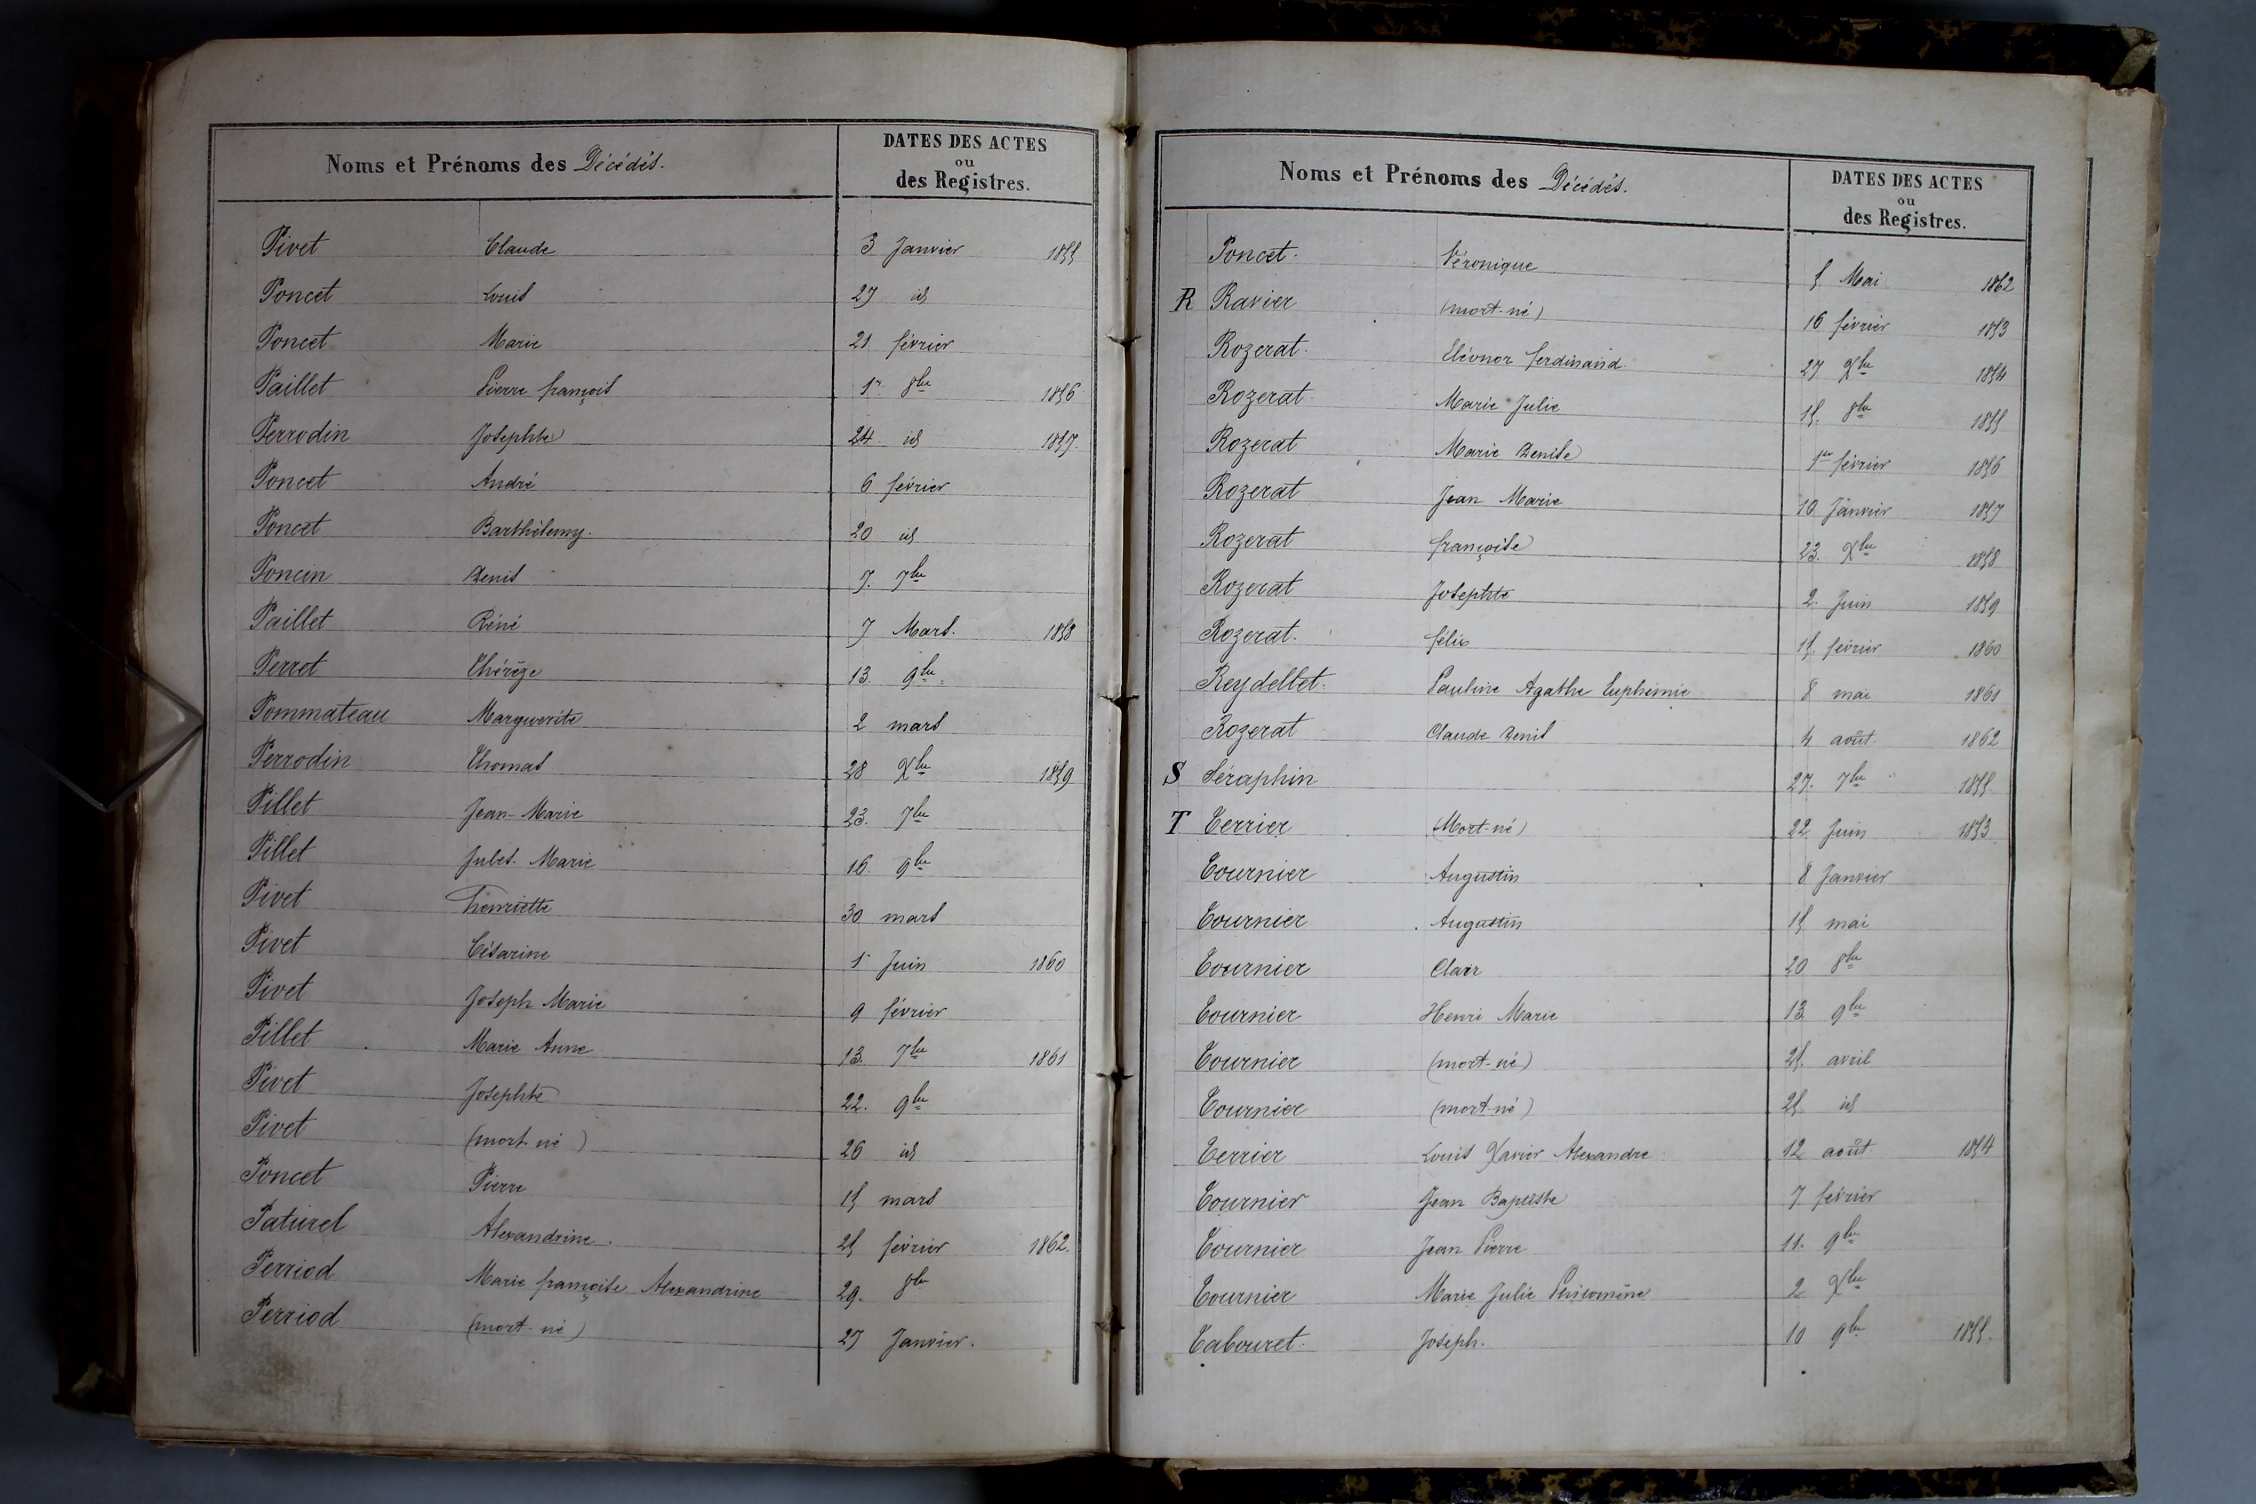 Noms et Prénoms des Décédés.
DATES DES ACTES
ou
des Registres.
Pivet Claude 3 Janvier 1855
Poncet Louis 27 id
Poncet Marie 21 février
Paillet Pierre françois 1er 8bre 1856
Perrodin Josephte 24 id 1857
Poncet André 6 février
Poncet Barthélemy. 20 id
Poncin Denis 7. 7bre
Paillet Réné 7 Mars. 1858
Perret Thérèze 13. 9bre
Pommateau Marguerite 2 mars
Perrodin Thomas 28 Xbre 1859
Pillet Jean-Marie 23. 7bre
Pillet Jules-Marie 16. 9bre
Pivet henriette 30 mars
Pivet Césarine 1er Juin 1860
Pivet Joseph Marie 9 février
Pillet Marie Anne 13. 7bre 1861
Pivet Josephte 22. 9bre
Pivet (mort né) 26 id
Poncet Pierre 15 mars
Paturel Alexandrine. 25 février 1862.
Perriod Marie françoise Alexandrine 29. 8bre
Perriod (mort-né) 27 Janvier.
Noms et Prénoms des Décédés.
DATES DES ACTES
ou
des Registres.
Poncet. Véronique 5 Mai 1862
R Ravier (mort-né) 16 février 1853
Rozerat. Eléonor ferdinand. 27 Xbre 1854
Rozerat Marie Julie 15. 8bre 1855
Rozerat Marie Denise 1er février 1856
Rozerat Jean Marie 10 Janvier 1857
Rozerat françoise 23. Xbre 1858
Rozerat Josephte 2. Juin 1859
Rozerat. félix 15. février 1860
Reydellet. Pauline Agathe Euphémie 8 mai 1861
Rozerat Claude Denis 4 août 1862
S Séraphin 27. 7bre 1855
T Terrier (Mort-né) 22 Juin 1853
Tournier Augustin 8 Janvier
Tournier Augustin 15 mai
Tournier Clair 20 8bre
Tournier Henri Marie 13 9bre
Tournier (mort-né) 25. avril
Tournier (mort-né) 25 id
Terrier Louis Xavier Alexandre 12 août 1854
Tournier Jean Baptiste 7 février
Tournier Jean Pierre 11. 9bre
Tournier Marie Julie 2 Xbre
Tabouret. Joseph. 10 9bre 1855.